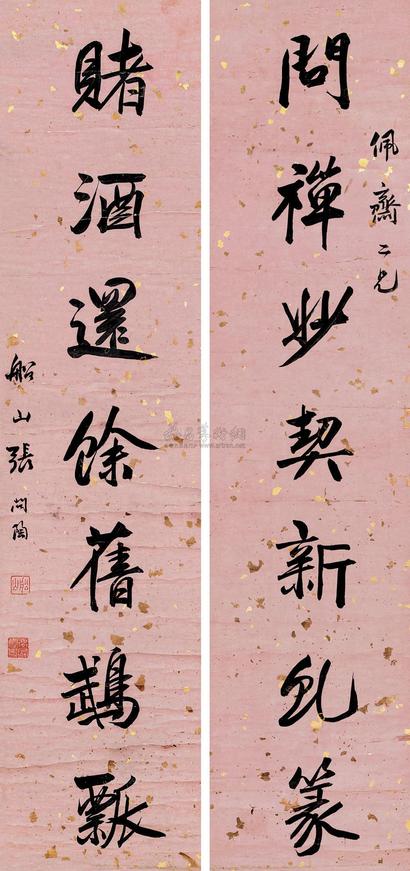 佩齋二兄
問禪妙契新虬篆
賭酒還餘舊鵡瓢
船山張問陶